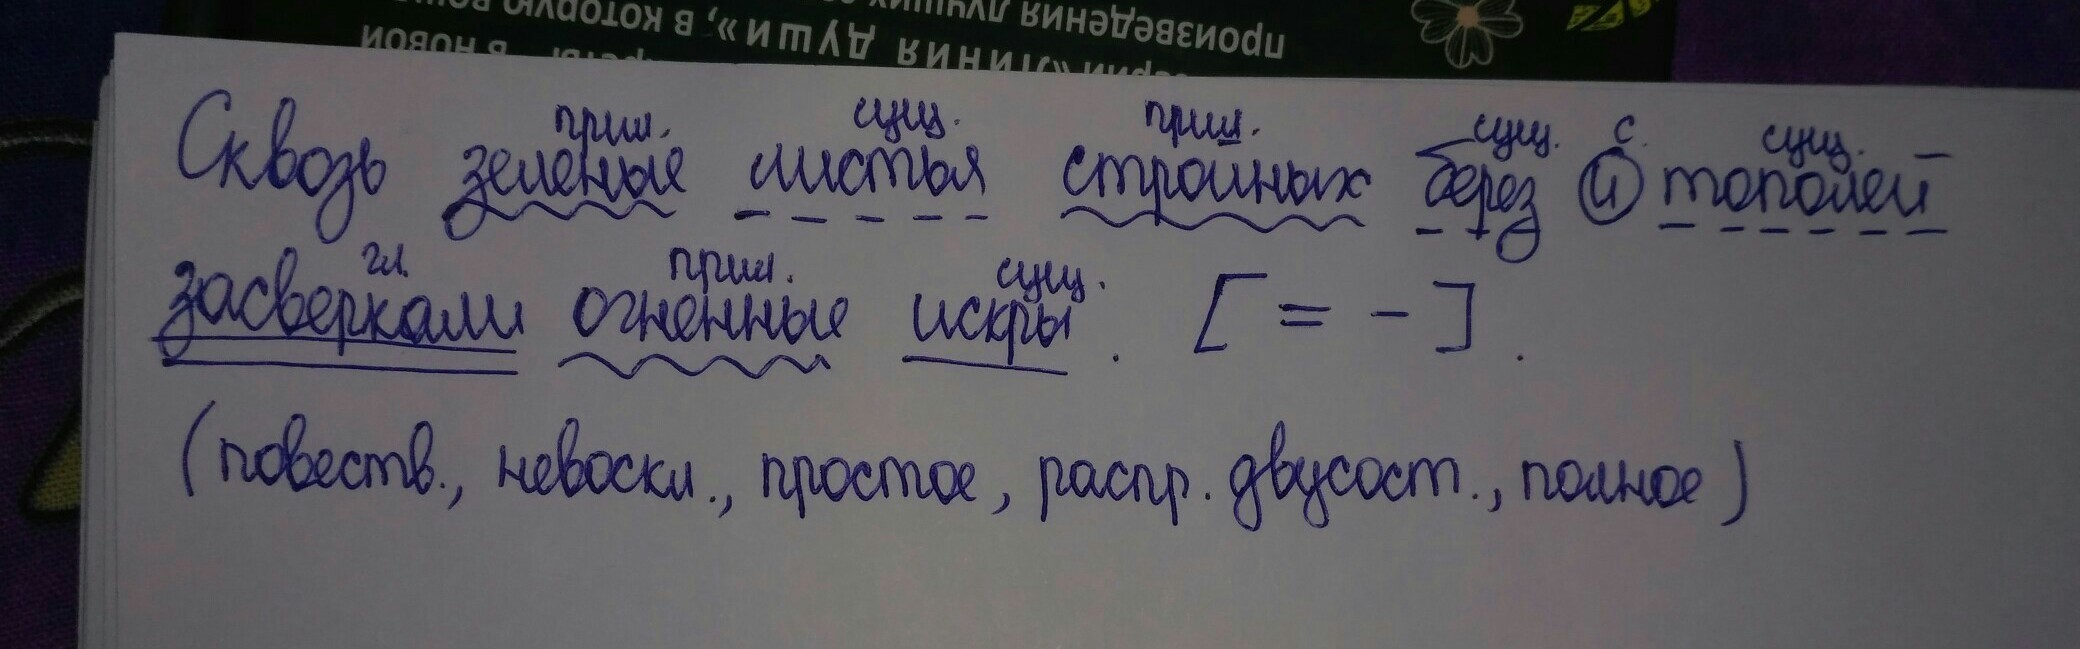 произведения лучших
серии «Линия души», в которую вош
в новой
прил. сущ. прил. сущ. с. сущ.
Сквозь зеленые листья стройных берез и тополей
гл. прил. сущ.
засверкали огненные искры. [ = - ].
(повеств., невоскл., простое, распр. двусост., полное)